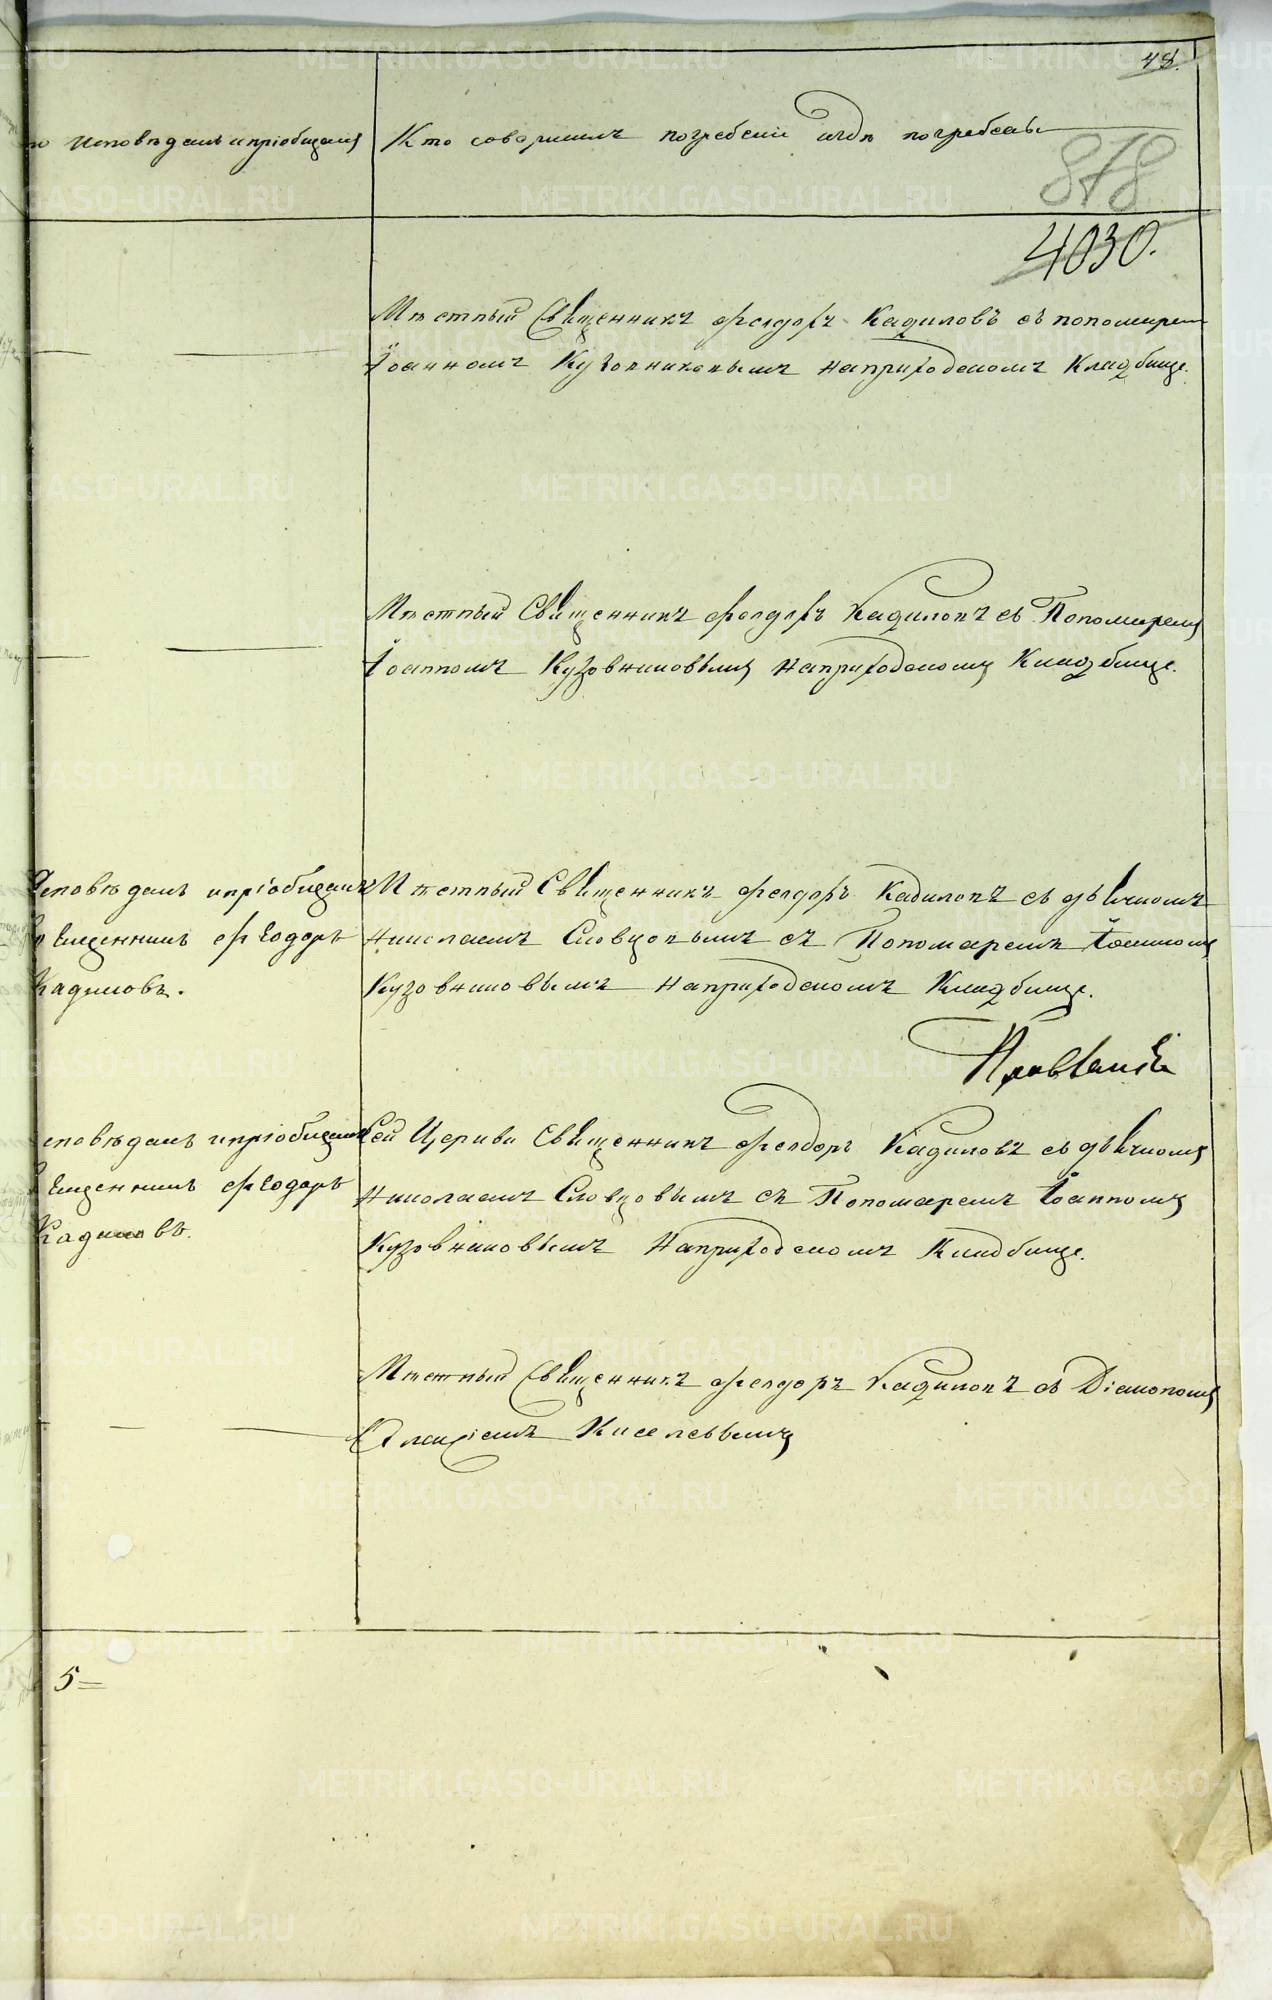 48.
Исповѣдалъ и пріобщалъ
Кто совершилъ погребеніе и гдѣ погребены
878
4030.
Мѣстный Священникъ Феодоръ Кадиловъ съ пономаремъ
Іоанномъ Кузовниковымъ на приходскомъ Кладбище.
Мѣстный Священникъ Феодоръ Кадиловъ съ Пономаремъ
Іоанномъ Кузовниковымъ на приходскомъ Кладбище.
Исповѣдалъ и пріобщалъ
Священникъ Феодоръ
Кадиловъ.
Мѣстный Священникъ Феодоръ Кадиловъ съ дьячкомъ
Николаемъ Словцовымъ съ Пономаремъ Іоанномъ
Кузовниковымъ на приходскомъ Кладбище.
Исповѣдалъ и пріобщалъ
Священникъ Феодоръ
Кадиловъ.
Сей Церкви Священникъ Феодоръ Кадиловъ съ дьячкомъ
Николаемъ Словцовымъ съ Пономаремъ Іоанномъ
Кузовниковымъ на приходскомъ Кладбище.
Мѣстный Священникъ Феодоръ Кадиловъ съ Діакономъ
Алексіемъ Киселевымъ
5=
METRIKI.GASO-URAL.RU